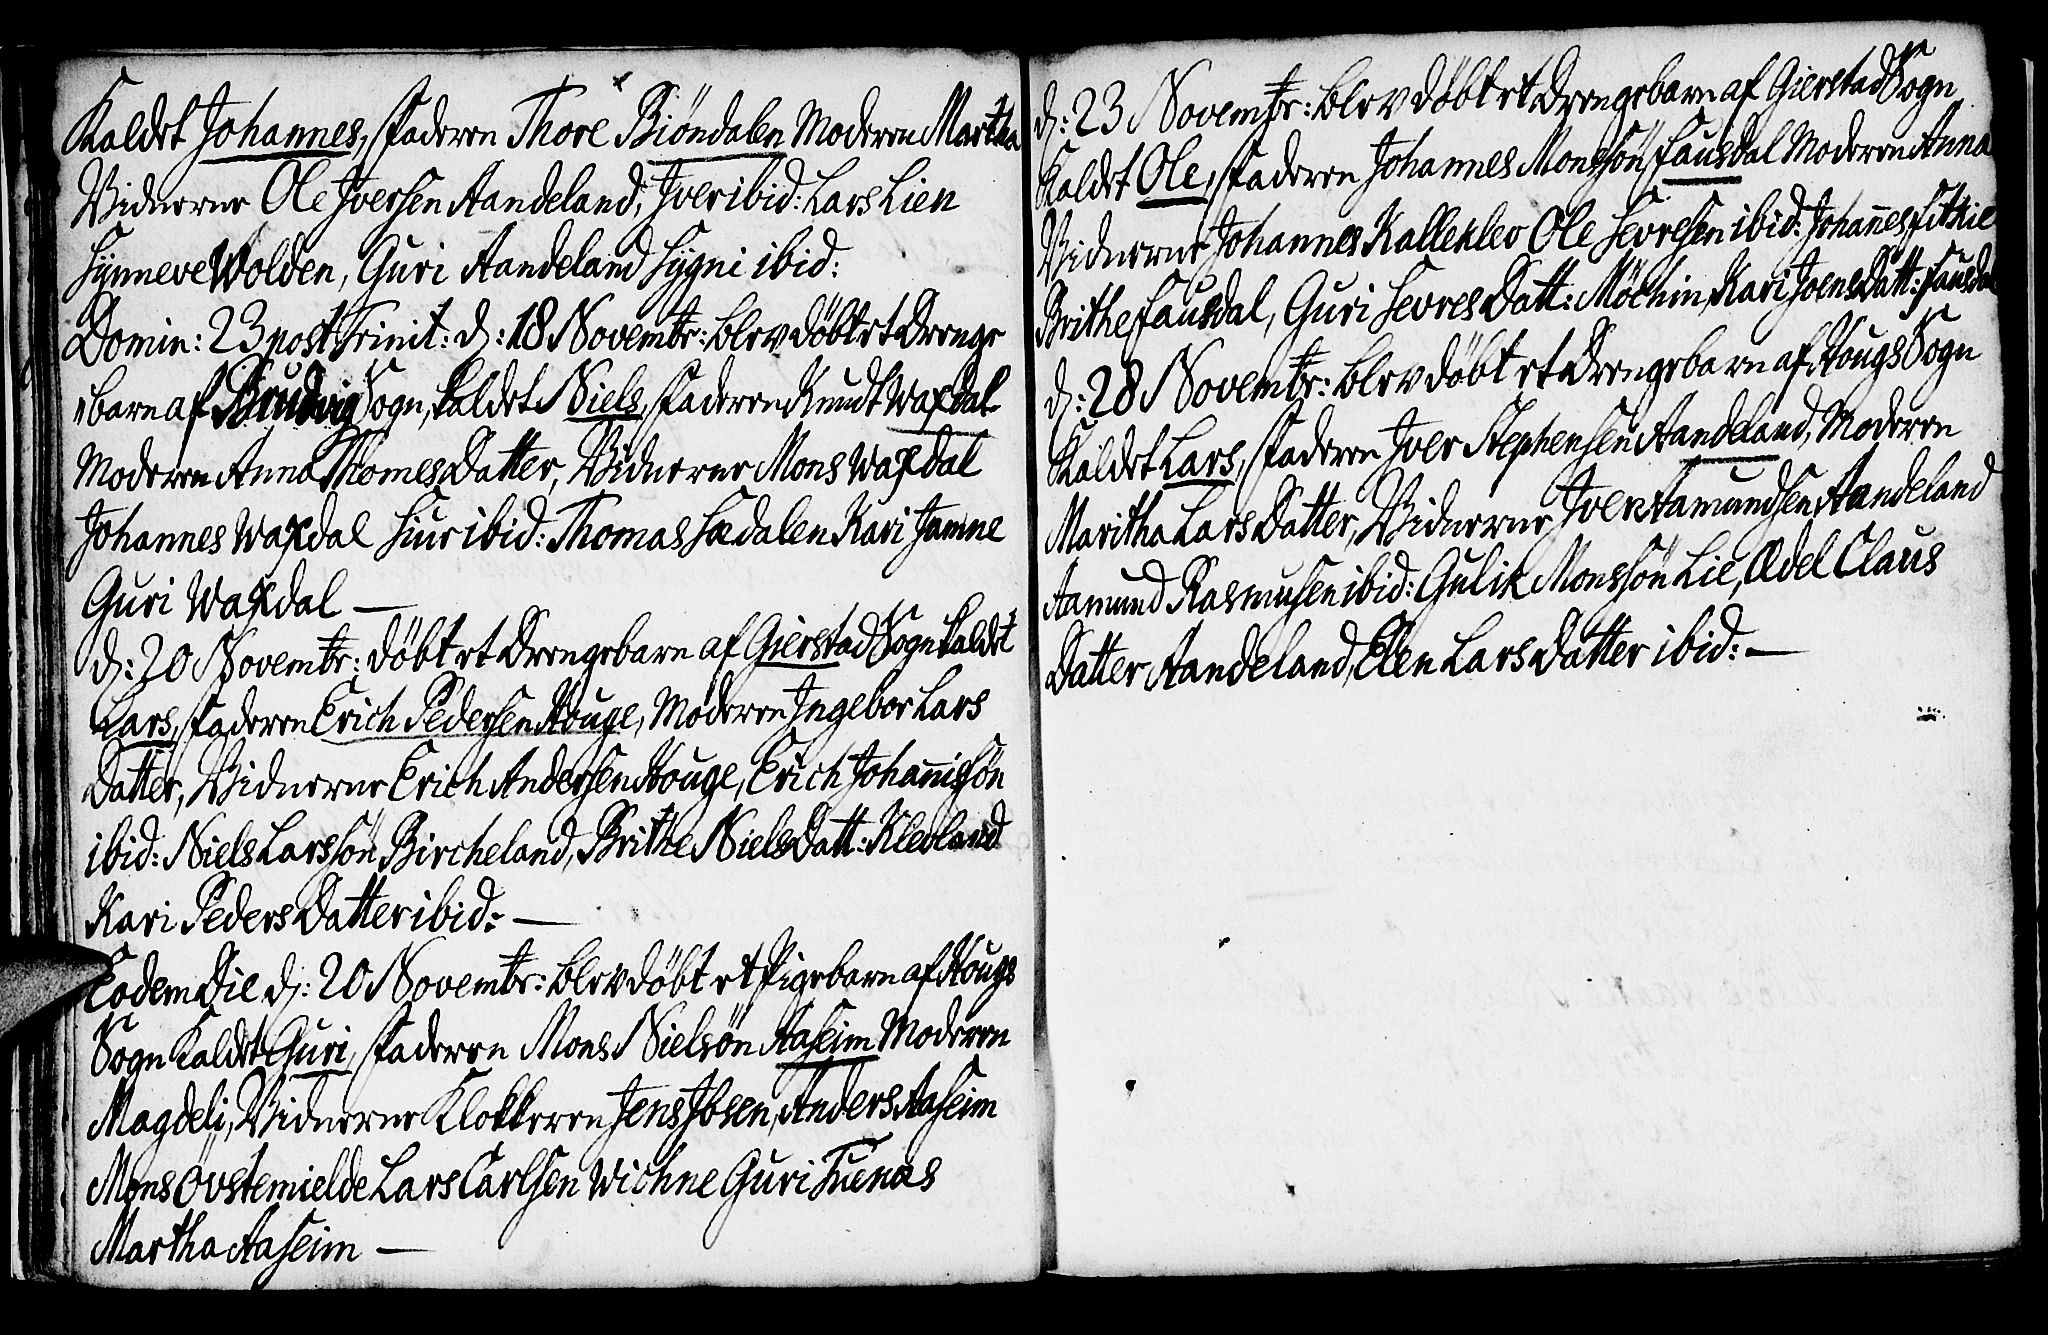 Kaldet Johannes, Faderen Thore Biöndalen Moderen Martha
Vidnerne Ole Iversen Aandeland, Iver ibid: Lars Lien
Synneve Wolden, Guri Aandeland Sygni ibid:
Domin: 23 post Trinit: d: 18 Novembr: blev döbt et Drenge
"barn af Brudvig Sogn, kaldet Niels, Faderen Knudt Waxdal
Moderen Anna Thomes Datter, Vidnerne Mons Waxdal
Johannes Waxdal Siur ibid: Thomas Sædalen Kari Jamne
Guri Waxdal —
d: 20 Novembr: döbt et Drengebarn af Gierstad Sogn kaldet
Lars, Faderen Erich Pedersen Houge, Moderen Ingebor Lars
Datter, Vidnerne Erich Andersen Houge, Erich Johannissön
ibid: Niels Larssön Bircheland, Brithe Niels Datt: Klevland
Kari Peders Datter ibid: —
Eodem Die d: 20 Novembr: blev döbt et Pigebarn af Hougs
Sogn Kaldet Guri, Faderen Mons Nielsön Aaseim Moderen
Magdeli, Vidnerne Klokkeren Jens Ibsen, Anders Aaseim
Mons Övstemielde Lars Carlsen Wichne Guri Tuenæs
Martha Aaseim —
d: 23 Novembr: blev döbt et Drengebarn af Gierstad Sogn
Kaldet Ole, Faderen Johannes Monssön Fausdal Moderen Anna
Vidnerne Johannes Kallehlev Ole Sevresen ibid: Johannes
Brithe Fausdal, Guri Sevres Datt: Möchin, Kari Joens Datt: Fausdal
d: 28 Novembr: blev döbt et Drengebarn af Hougs Sogn
Kaldet Lars, Faderen Iver Stephensen Aandeland, Moderen
Maritha Lars Datter, Vidnerne Iver Aamundsen Aandeland
Aamund Rasmusen ibid: Gulik Monssön Lie, Ædel Claus
Datter Aandeland, Elen Lars Datter ibid: —